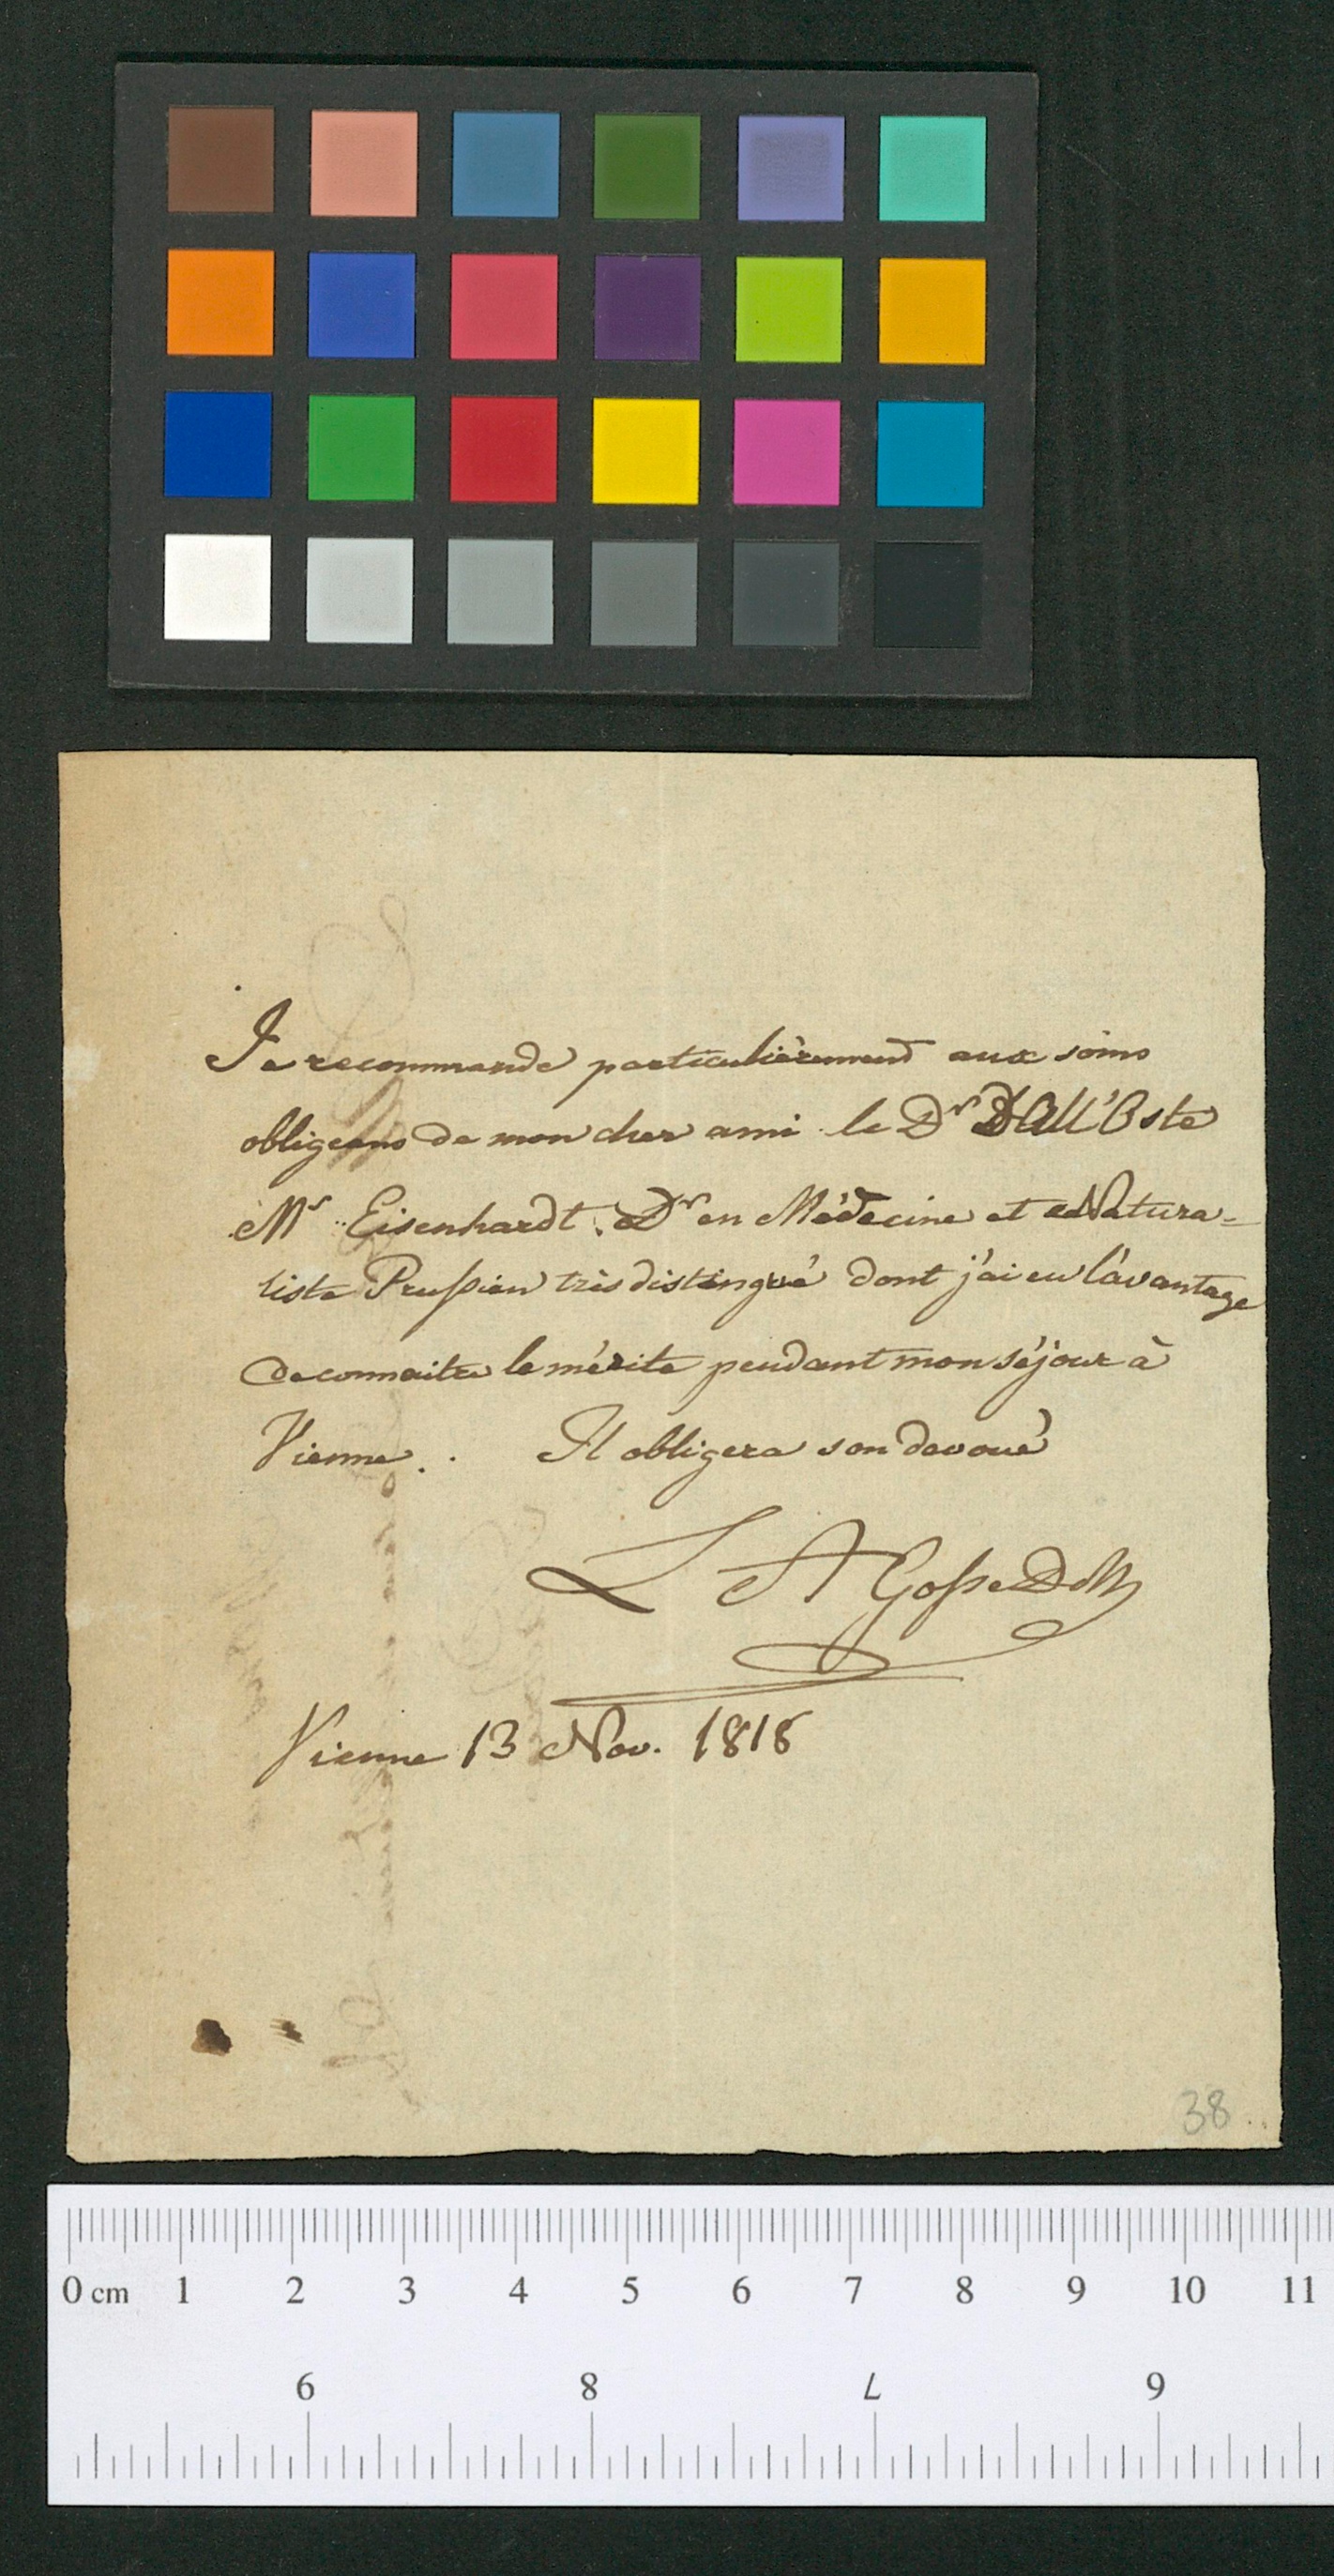 Je recommande particulièrement aux soins
obligeans de mon cher ami le Dr Dall'Oste
Mr Eisenhardt. Dr en Médecine et Natura=
liste Prussien très distingué dont j'ai eu l'avantage
de connaitre le mérite pendant mon séjour à
Vienne. Il obligera son devoué
L A Gosse DM
Vienne 13 Nov. 1818
38
0 cm 1 2 3 4 5 6 7 8 9 10 11
9 8 7 6